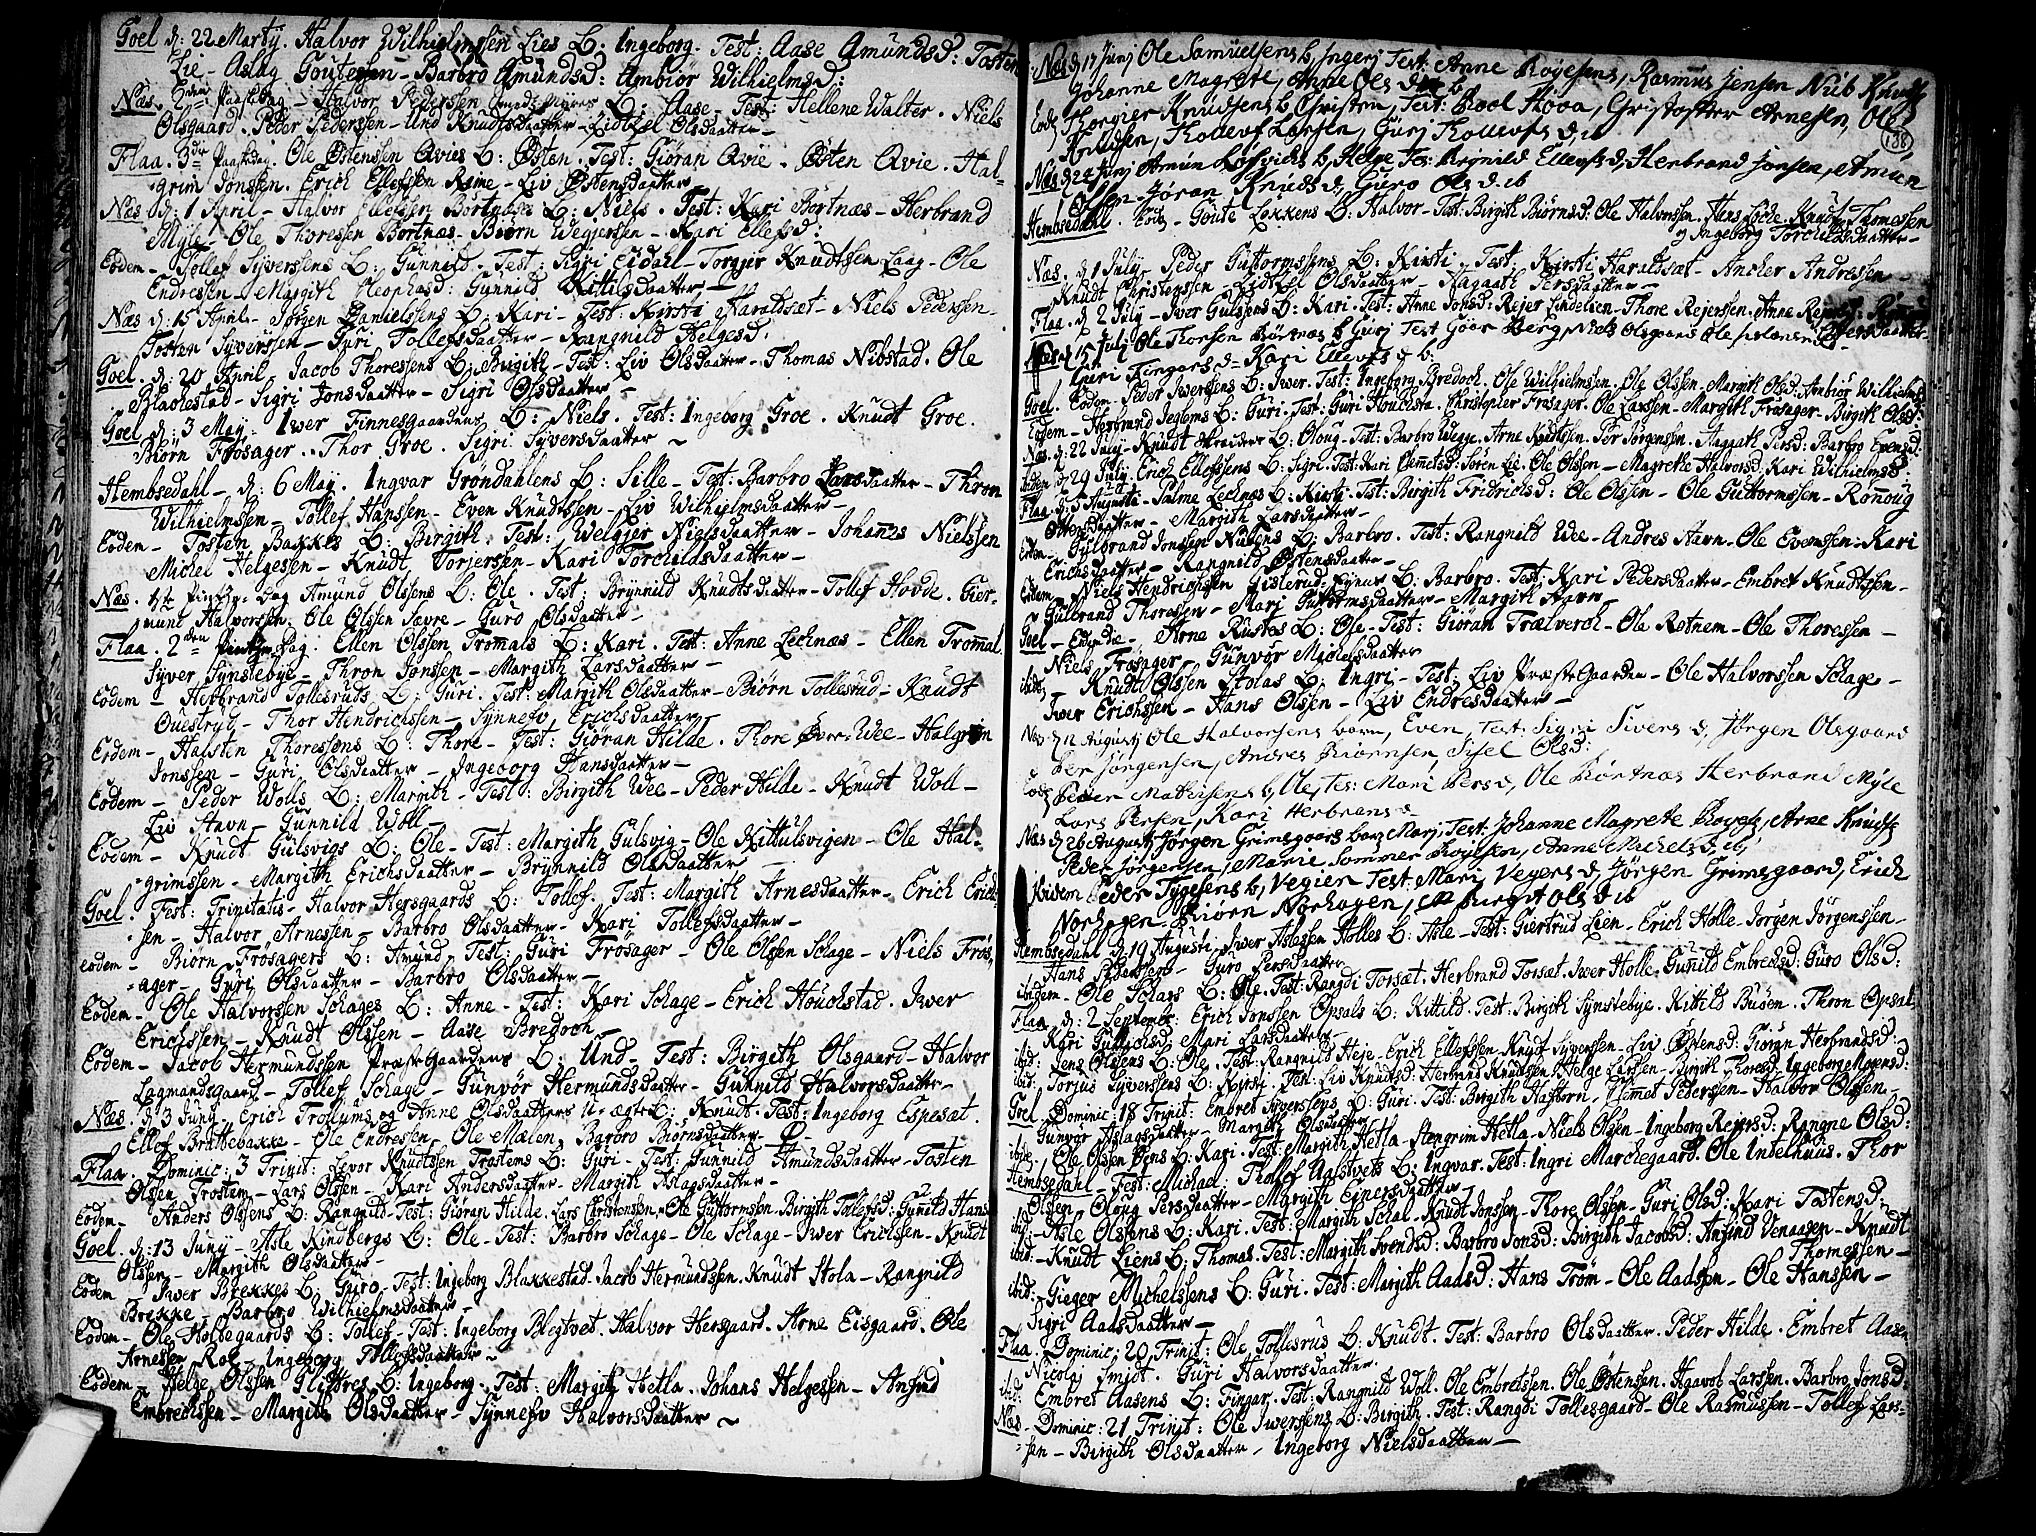 Goel d: 22 Martÿ. Halvor Wilhielmssen Lies B: Ingeborg. Test: Aase Amundsd: Tosten
Lie - Aslag Goutessen - Barbro Amundsd: Ambiör Wilhielmsd:
Næs. 2den Paaskedag - Halvor Pederssen B: Aase - Test: Hellene Walter. Niels
Olsgaard. Peder Pederssen - Und Knudtsdaatter - Zidtzel Olsdaatter -
Flaa. 3die Paaskedag. Ole Østenssen Avies B: Østen. Test: Giöran Avie. Østen Avie. Hal-
grim Jonssen. Erich Ellefssen Rime - Liv Østensdaatter
Næs d: 1 April - Halvor Ellefssen Börtnæs B: Niels. Test: Kari Börtnæs - Herbrand
Myle - Ole Thoressen Bortnæs - Biörn Wegjerssen - Kari Ellefsd:
Eodem - Tollef Syverssens B: Gunnild. Test: Sigri Eidahl - Torgjer Knudtsen Laag - Ole
Endressen - Margith Cleophasd: Gunnild Kittilsdaatter -
Næs d: 15 April - Jörgen Danielssens B: Kari - Test: Kirsti Haraldsæt - Niels Pederssen -
Tosten Syverssen - Guri Tollefsdaatter - Rangnild Helgesd.
Goel. d: 20 April. Jacob Thoressens B: Birgith - Test: Liv Olsdaatter - Thomas Nibstad. Ole
Blachestad - Sigri Jonsdaatter - Sigri Olsdaatter -
Goel d: 3 May. Iwer Finnesgaardens B: Niels. Test: Ingeborg Groe. Knudt Groe.
Biörn Frösager. Thor Groe. Sigri Syversdaatter ~
Hembsedahl - d: 6 May. Ingvar Gröndahlens B: Sille - Test: Barbro Larsdaatter - Thron
Wilhielmssen - Tollef Hanssen - Even Knudtssen - Liv Wilhielmsdaatter -
Eodem - Tosten Bakkes B: Birgith. Test: Welgjer Nielsdaatter - Johannes Nielssen
Michel Helgessen - Knudt Torjerssen - Kari Torchildsdaatter -
Næs. 1ste Pintze-Dag Amund Olssens B: Ole. Test: Brynnild Knudtsdaatter - Tollef Hovde. Gier-
mund Halvorssen. Ole Olssen Sævre - Guro Olsdaatter -
Flaa. 2den Pintze Dag. Ellen Olssen Trommals B: Kari. Test: Anne Lechnæs - Ellen Trommal
Syver Synslebye - Thron Jonssen - Margith Larsdaatter -
Eodem - Herbrand Tollesruds B: Guri. Test: Margith Olsdaatter - Biörn Tollesrud - Knudt
Ouestryd - Thor Hendrichssen - Synnefv Erichsdaatter -
Eodem - Halsten Thoressens B: Thore - Test: Giöran Hilde. Thore Över-Wee - Halgrim
Jonssen - Guri Olsdaatter - Ingeborg Hansdaatter -
Eodem - Peder Wolls B: Margith - Test: Birgith Wee - Peder Hilde - Knudt Woll -
Liv Stavn - Gunnild Woll -
Eodem - Knudt Gulsvigs B: Ole - Test: Margith Gulsvig - Ole Kittulsvigen - Ole Hal-
grimssen - Margith Erichsdaatter - Brynnild Olsdaatter -
Goel. Fest: Trinitatis - Halvor Hersgaards B: Tollef. Test: Margith Arnesdaatter - Erich Erich-
sen - Halvor Arnessen - Barbro Olsdaatter - Kari Tollefsdaatter -
eodem - Biörn Frösagers B: Amund. Test: Guri Frösager - Ole Olssen Schage - Niels Frös-
ager - Guri Olsdaatter - Barbro Olsdaatter -
Eodem - Ole Halvorssen Schages B: Anne - Test: Kari Schage - Erich Houchstad. Iwer
Erichssen - Knudt Olssen - Aase Bredoch -
Eodem - Jacob Hermundssen Præste Gaardens B: Und - Test: Birgith Olsgaard - Halvor
Lagmandsgaard - Tollef Schage - Gunvör Hermundsdaatter - Gunnild Halvorsdaatter -
Næs. d: 3 Juny. Erich Trollums og Anne Olsdaatters U-ægte B: Knudt. Test: Ingeborg Espesæt.
Ellef Brattebakke - Ole Endressen - Ole Mælen - Barbro Biörnsdaatter -
Flaa. Dominic: 3 Trinit: Levor Knudtssen Trostems B: Guri - Test: Gunnild Amundsdaatter - Tosten
Olssen Trostem - Lars Olssen - Kari Andersdaatter - Margith Aslagsdaatter -
Eodem - Anders Olssens B: Rangnild - Test: Giöran Hilde. Lars Christenssen. Ole Guttormssen - Birgith Tollefsd: Gunild Hans
Goel. d: 13 Juny - Asle Kindbergs B: Ole - Test: Barbro Schage - Ole Schage - Iwer Erichssen - Knudt
Olssen - Margith Olsdaatter -
Eodem - Iwer Brekkes B: Guro. Test: Ingeborg Blakkestad. Jacob Hermundssen. Knudt Stola - Rangnild
Brekke - Barbro Wilhielmsdaatter -
Eodem - Ole Holtegaards B: Tollef - Test: Ingeborg Blegtvet. Halvor Hersgaard. Arne Eisgaard. Ole
Arnessen Rot. Ingeborg Tollefsdaatter ~
Eodem - Helge Olssen Glittres B: Ingeborg. Test: Margith Hetla. Johans Helgessen - Ansfind
Embrechssen - Margith Olsdaatter - Synnefv Halvorsdaatter ~
138
Næs d 17 Junj Ole Samuelsens b, Ingerj Test: Anne Röyesens, Rasmus Jensen Nub Knudtz
Johanne Magrete, Anne Ols d
Eod Thorgier Knudsens b Christen, Test: Hova, Christoffer Arnesen, Ole
Knudsen, Tollevf Larsen, Gurj Tollevfs d, ib
Næs d 24 Junj Amun b, Helge Tes: Rejnild Ellevfs d, Herbrand Jonsen, Amun
Jöran Knuds d, Guro Ols d. ib
Hembsedahl. Goute Løkkens B: Halvor - Test: Birgith Biörnsd: Ole Halvorssen. Hans Löcke. Knudt Thomessen
og Ingeborg Torchildsdaatter -
Næs. d: 1 July - Peder Guttormssens B: Kirsti. Test. Kirsti Haraldsæt - Ancher Andressen
Knudt Christenssen - Zidtzel Olsdaatter - Aagaath Persdaatter -
Flaa. d: 2 July - Iver Gulssens B: Kari. Test: Anne Jonsd: Rejer Endelsen - Thore Rejerssen. Anne
Næs d 15 July Ole Thoresen Börtnæs b Gurj Test Goor Berg, Niels Olsgaard Ole
Guri Fingars d - Kari Ellevfs d b.
Goel. Eodem - Peder Iwerssens B: Iwer. Test: Ingeborg Bredoch. Ole Wilhielmssen. Ole Olssen. Margith Olsd: Ambiör Wilhielmsd
Eodem - Herbrand Segloms B: Guri. Test: Guri Houchsta. Christopher Frösager. Ole Larssen - Margith Frosager. Birgith Olsd:
Næs. d: 22 July - Knudt Skreders B: Oloug - Test: Barbro Wegge. Arne Knudtssen. Per Jörgenssen. Aagaath Persd: Barbro Evensd:
Eodem d 29 July. Erich Ellefssens B: Sigri. Test: Kari Clemetsd: Sören Lie. Ole Olssen - Magrethe Halvorsd: Kari Wilhielmsd:
Flaa. d: 5 Augusti - Palme Lechnæs B: Kirsti. Test: Birgith Fridrichsd: Ole Olssen - Ole Guttormssen - Ronnoug
Ottersdaatter - Margith Larsdaatter -
Eodem - Gulbrand Jonssen Nubens B: Barbro. Test: Rangnild Wee - Andres Stavn - Ole Evenssen - Kari
Erichsdaatter - Rangnild Østensdaatter -
Eodem - Niels Hendrichssen Gislerud-Eynes B: Barbro. Test: Kari Pedersdaatter - Embret Knudtssen -
Gulbrand Thoressen - Mari Guttormsdaatter - Margith Stavn -
Goel - Arne Rustes B: Ole - Test: Giöran Trælverch - Ole Rotnem - Ole Thoressen -
Niels Frösager - Gunvör Michelsdaatter
ibid: - Knudt Olssen Stolas B: Ingri - Test: Liv Præste Gaarden - Ole Halvorssen Schage -
Iwer Erichssen - Hans Olssen - Liv Endresdaatter -
Næs d 12 Augustj Ole Halvorsens barn, Even, Test: Sigri Sivers d, Jörgen Olsgaard
Per Jörgensen, Andres Biörnsen, Sisel Olsd:
Eod Peder Mathisens b, Ole, Tes: Mari Pers d, Ole Börtnæs Herbrand Myle
Lars Persen, Kari Herbrans d
Næs d 26 Augustj Jörgen Grimsgaars barn Marj, Test: Johanne Magrete Röyes, Arne Knudtz
Peder Jörgensen, Marie Sommer Röyesen, Anne Michels d. ib,
Ibidem Peder Tygesens b, Vegier Test: Mari Vegers d, Jörgen Grimsgaard, Erich
Norhagen Biörn Norhagen, Birgit Ols d ib
Hembsedahl d. 19 Augusti. Iwer Aslessen Holles B: Asle - Test: Giertrud Lien - Erich Holle - Jörgen Jörgenssen -
Hans Pederssen - Guro Persdaatter
ibidem - Ole Schars B: Ole. Test: Rangdi Torsæt. Herbrand Torsæt. Iwer Holle. Gunnild Embretsd: Guro Olsd:
Flaa d: 2 Septembr: Erich Jonssen Opsals B: Kittild. Test: Birgith Synstebye. Kittild Buöen. Thron Opsal
Kari Gullichsd: Mari Larsdaatter
ibid: Jens Olssens B: Ole. Test: Rangnild Heje - Erich Ellefssen - Knudt Syverssen - Liv Østensd: Giöran Herbrandsd:
ibid: Torjus Syverssens B: Kirsti. Test: Liv Knudtsd: Herbrand Knudtssen. Helge Larssen - Birgith Thoresd: Ingeborg Mogensd:
Goel. Dominic: 18 Trinit: Embret Syverssens B: Guri. Test: Birgith Haftorn. Clemet Pederssen - Halvor Olssen -
Gunvor Aslagsdaatter - Margith Olsdaatter
ibid: Ole Olssen Eens B: Kari. Test: Margith Hetla - Stengrim Hetla - Niels Olssen - Ingeborg Rejersd: Rangne Olsd:
Hembsedahl - Fest: Michael: Thollef Ualstvets B: Ingvar. Test: Ingri Marchegaard. Ole Intelhuus. Thor
Olssen. Oloug Persdaatter - Margith Einersdaatter
ibid: - Asle Olssens B: Kari. Test: Margith Schal - Knudt Jonssen - Thore Olssen - Guri Olsd: Kari Tostensd:
ibid: - Knudt Liens B: Thomas. Test: Margith Svendsd: Barbro Jonsd: Birgith Jacobsd: Amund Venaasen - Knudt
Thomessen -
ibid: - Gieger Michelssens B: Guri. Test: Margith Aadsd: Hans Tröm - Ole Aadssen - Ole Hanssen -
Sigri Aadsdaatter -
Flaa. Dominic: 20 Trinit: Ole Tollesrus B: Knudt. Test: Barbro Olsdaatter. Peder Hilde. Embret Aasen
Nicolaj Smidt. Guri Halvorsdaatter.
ibid: Embret Aasens B: Fingar. Test: Rangnild Woll. Ole Embretssen. Ole Østenssen. Haavol Larssen. Barbro Jonsd:
Næs. Dominic: 21 Trinit: Ole Iwerssens B: Birgith. Test: Rangdi Tollesgaard - Ole Rasmussen - Tollef Lars-
sen - Birgith Olsdaatter - Ingeborg Nielsdaatter -